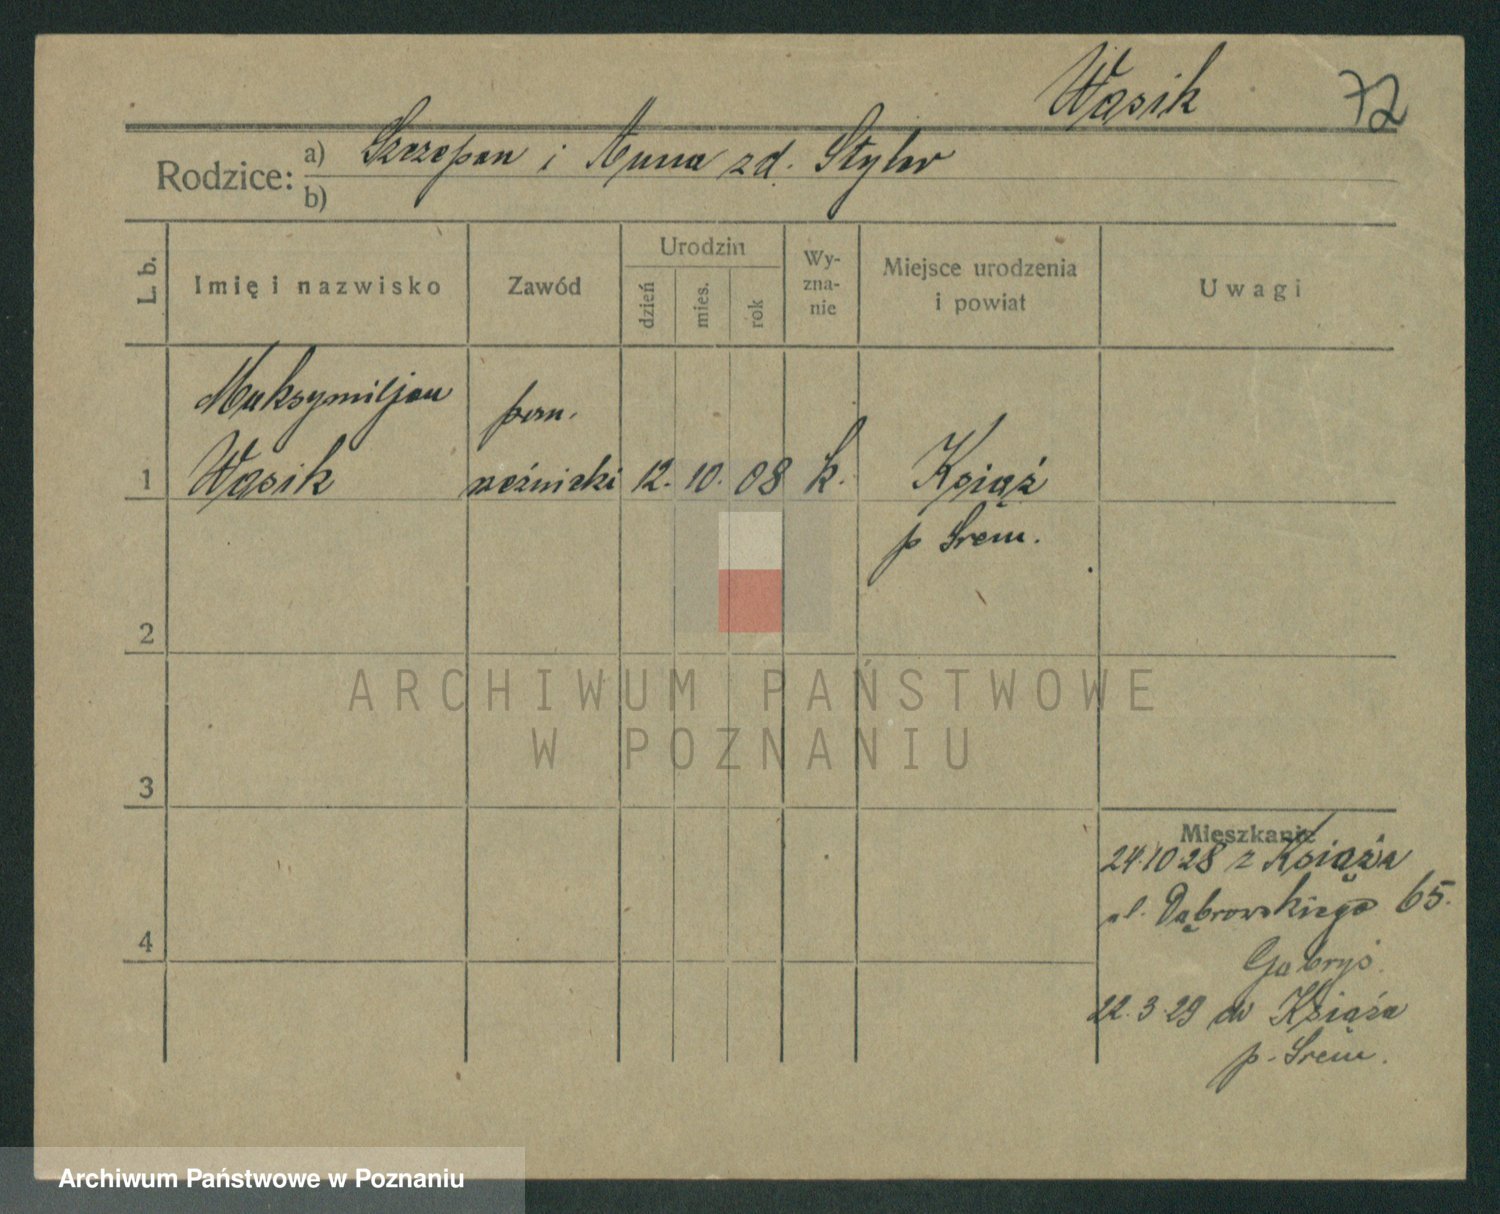 Wąsik 72
Rodzice: a) Szczepan i Anna zd.
b)
L. b.
Imię i nazwisko
Zawód
Urodzin
dzień
mies.
rok
Wy-
zna-
nie
Miejsce urodzenia
i powiat
Uwagi
Maksymiljan pom.
1 Wąsik rzeźnicki 12. 10. 08 k. Książ
p Śrem.
2
3
4
Mieszkanie
24.10 28 z Książa
ul. Dąbrowskiego 65.
Gabryś
22. 3 29 do Książa
p. Śrem.
ARCHIWUM PAŃSTWOWE
W POZNANIU
Archiwum Państwowe w Poznaniu